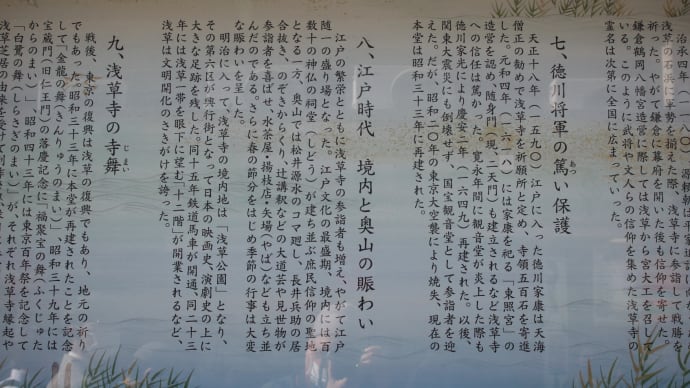 治承四年(一一八〇)源頼朝は平家追
浅草の石浜に軍勢を揃えた際、浅草寺に参詣して戦勝を
祈った。やがて鎌倉に幕府を開いた後も信仰を寄せた。
鎌倉鶴岡八幡宮造営に際しては浅草から宮大工を召して
いる。このように武将や文人らの信仰を集めた浅草寺の
霊名は次第に全国に広まっていった。
七、徳川将軍の篤い保護
あつ
天正十八年(一五九〇)江戸に入った徳川家康は天海
僧正の勧めで浅草寺を祈願所と定め、寺領五百石を寄進
した。元和四年(一六一八)には家康を祀る「東照宮」の
造営を認め、随身門(現・二天門)も建立されるなど浅草寺
への信任は篤かった。寛永年間に観音堂が炎上した際も
徳川家光により慶安二年(一六四九)再建された。以後、
関東大震災にも倒壊せず、国宝観音堂として参詣者を迎
えた。だが、昭和二〇年の東京大空襲により焼失、現在の
本堂は昭和三十三年に再建された。
八、江戸時代 境内と奥山の賑わい
江戸の繁栄とともに浅草寺の参詣者も増え、やがて江戸
随一の盛り場となった。江戸文化の最盛期、境内には百
数十の神仏の祠堂(しどう)が建ち並ぶ庶民信仰の聖地
となる一方、奥山では松井源水のコマ廻し、長井兵助の居
合抜き、のぞきからくり、辻講釈などの大道芸や見世物が
参詣者を喜ばせ、水茶屋・楊枝店・矢場(やば)なども立ち並
んだのである。さらに春の節分をはじめ季節の行事は大変
な賑わいを呈した。
明治に入って浅草寺の境内地は「浅草公園」となり、
その第六区が興行街となって日本の映画史、演劇史の上に
大きな足跡を残した。同十五年鉄道馬車が開通、同二十三
年には浅草一帯を眼下に望む「十二階」が開業されるなど、
浅草は文明開化のさきがけを誇った。
九、浅草寺の寺舞
じまい
戦後、東京の復興は浅草の復興でもあり、地元の祈り
でもあった。昭和三十三年に本堂が再建されたことを記念
して「金龍の舞(きんりゅうのまい)」、昭和三十九年には
宝蔵門(旧仁王門)の落慶記念に「福聚宝の舞(ふくじゅた
からのまい)」、昭和四十三年には東京百年祭を記念して
「白鷺の舞(しらさぎのまい)」が、それぞれ浅草寺縁起や
浅草芝居の由来を